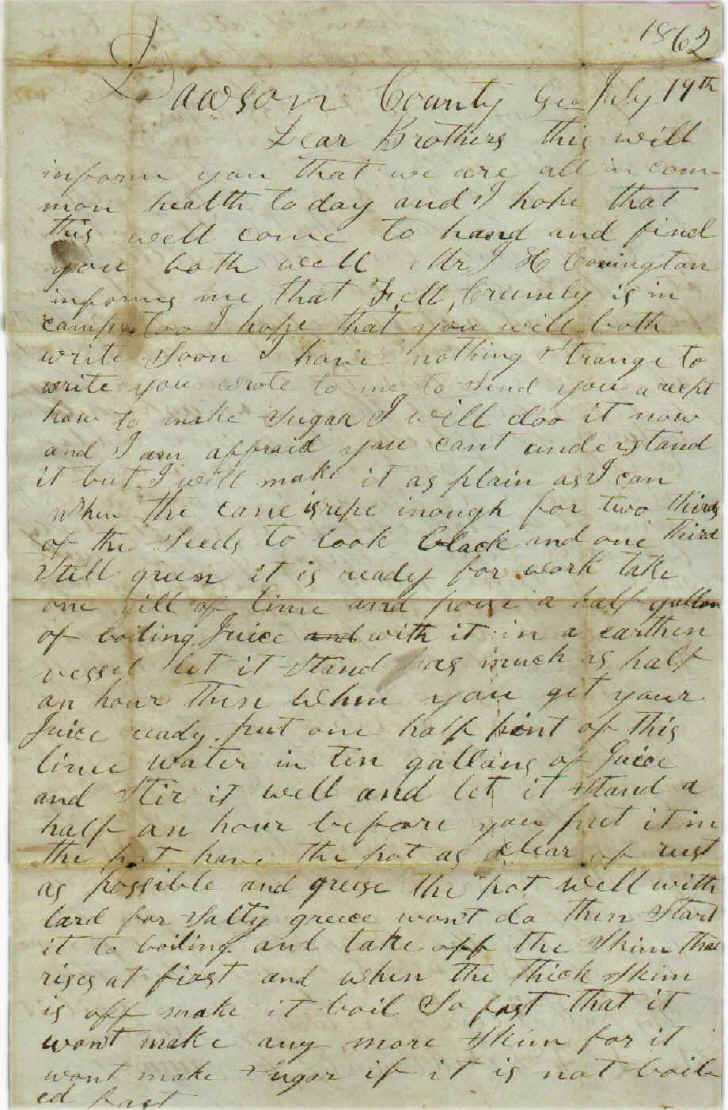 1862
Dawson County Geo July 19th
Dear Brothers this will
inform you that we are all in com
mon health to day and I hope that
this well come to hand and find
you both well Mr J H Covington
informs me that Fell Crumly is in
camps too I hope that you will both
write soon I have nothing strange to
write you wrote to me to send you a
how to make sugar I will doo it now
and I am affraid you cant understand
it but I will make it as plain as I can
When the cane is ripe inough for two thirds
of the seeds to look black and one third
still green it is ready for work take
one gill of lime and a half gallon
of boiling Juice and with it in a earthen
vessel let it stand as much as half
an hour then when you get your
Juice ready put one half pint of this
lime water in ten gallans of Juice
and stir it well and let it stand a
half an hour before you put it in
the pot have the pot as clear of rust
as possible and grease the pot well with
lard for salty greece wont do then start
it to boiling and take off the skim that
rises at first and when the thick skim
is off make it boil so fast that it
wont make any more skim for it
wont make sugar if it is not boil
ed fast